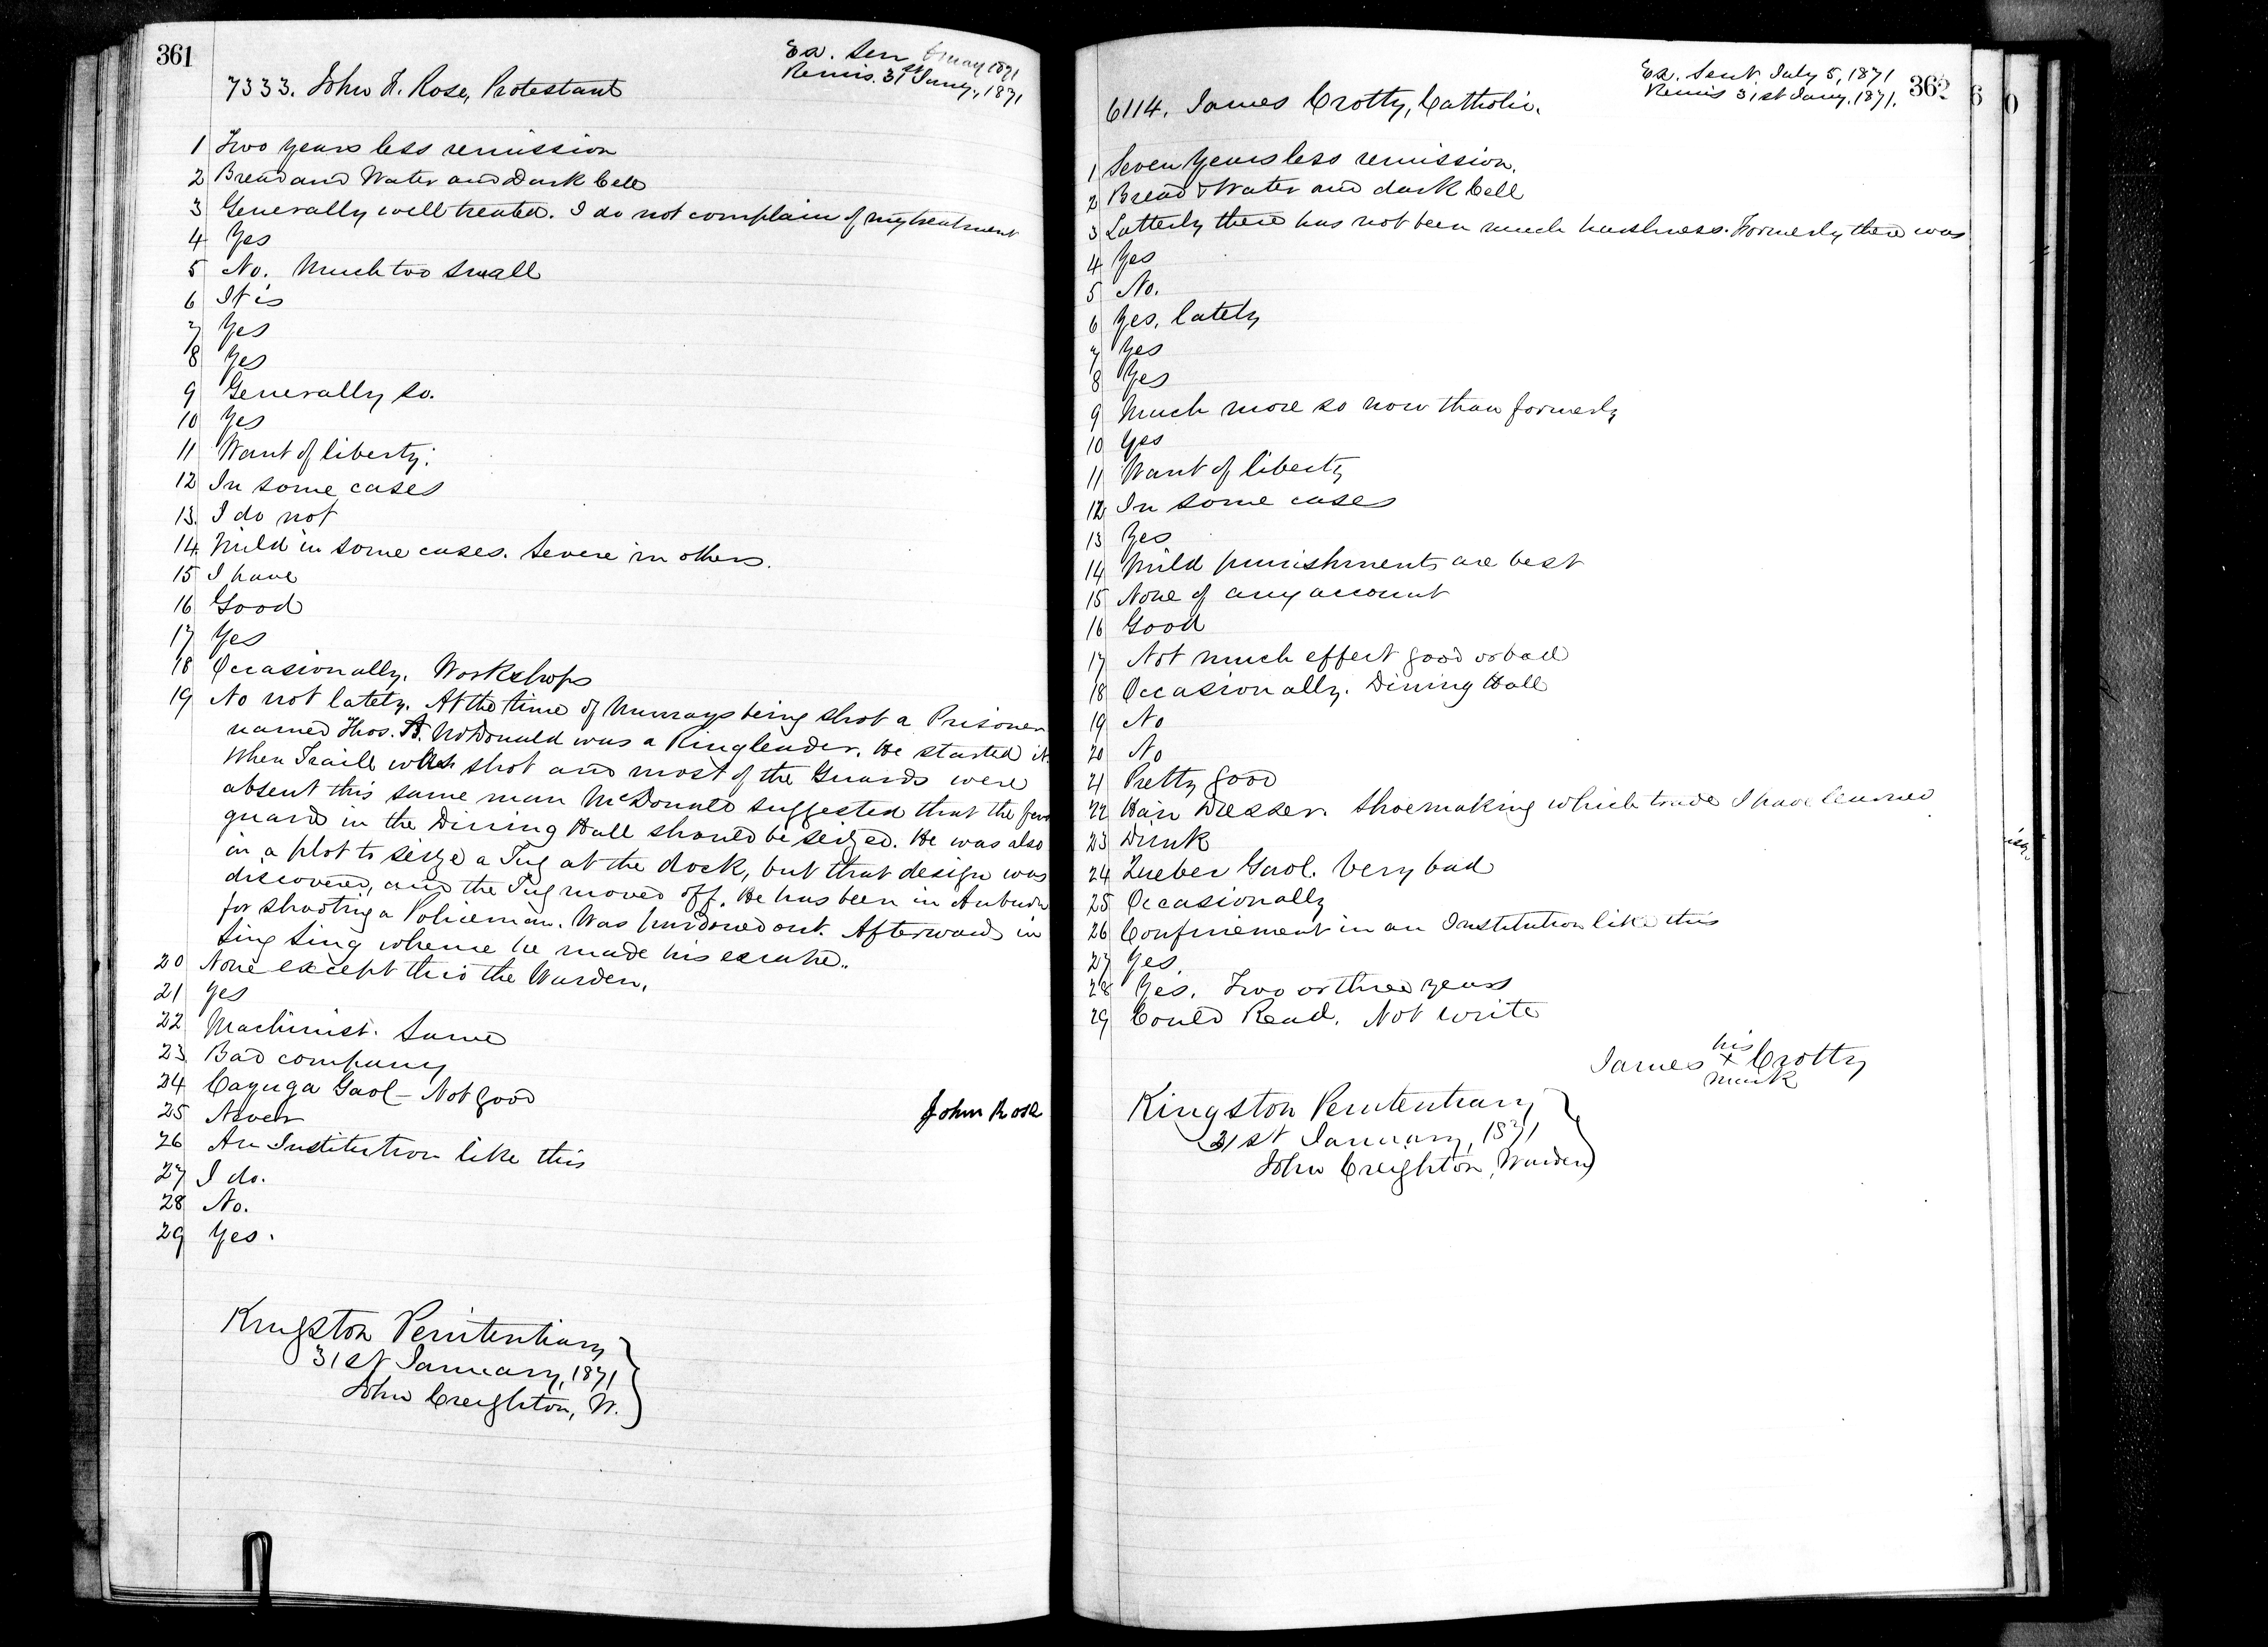 361
Ex. Sen 6 May 1871
Remis. 31st Jany., 1871
7333. John R. Rose, Protestant
1 Two years less remission
2 Bread and Water and Dark Cell
3 Generally well treated. I do not complain of my treatment
4 Yes
5 No. Much too small
6 It is
7 Yes
8 Yes
9 Generally so.
10 Yes
11 Want of liberty.
12 In some cases
13. I do not
14. Mild in some cases. Severe in others.
15 I have
16 Good
17 Yes
18 Occasionally. Workshops
19 No not lately. At the time of Murrays being shot a Prisoner
named Thos. A. McDonald was a Ringleader. He started it.
When Traill was shot and most of the Guards were
absent this same man McDonald suggested that the few
guard in the Dining Hall should be seized. He was also
in a plot to seize a Tug at the dock, but that design was
discovered, and the Tug moved off. He has been in Auburn
for shooting a Policeman. Was pardoned out. Afterwards in
Sing Sing whence he made his escape..
20 None except this the Warden.
21 Yes
22 Machinist. Same
23. Bad company
24 Cayuga Gaol - Not good
25 Never
John Rose
26 An Institution like this
27 I do.
28 No.
29 Yes.
Kingston Penitentiary
31st January, 1871
John Creighton, W.
362
Ex. Sent. July 5, 1871
Remis 31st Jany. 1871.
6114. James Crotty, Catholic.
1 Seven Years less remission.
2 Bread & Water and dark Cell
3 Latterly there has not been much harshness. Formerly there was
4 Yes
5 No.
6 Yes, lately
7 Yes
8 Yes
9 Much more so now than formerly
10 Yes
11 Want of liberty
12 In some cases
13 Yes
14 Mild punishments are best
15 None of any account
16 Good
17 Not much effect good or bad
18 Occasionally. Dining Hall
19 No
20 No
21 Pretty good
22 Hair Dresser. Shoemaking which trade I have learned
23 Drink
24 Quebec Gaol. Very bad
25 Occasionally
26 Confinement in an Institution like this
27 Yes
28 Yes. Two or three years
29 Could Read. Not write
his
James X Crotty
mark
Kingston Penitentiary
31st January, 1871
John Creighton, Warden
6
0